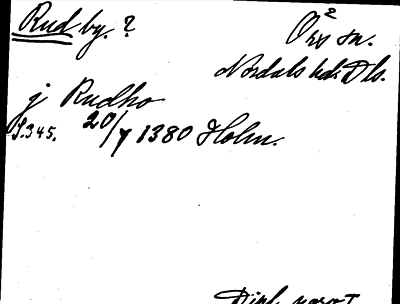 Rud by. ?
Örs sn.
2
Nordals hd. Dls.
j Rudho
S. 345. 20/7 1380 Holm.
Dipl.